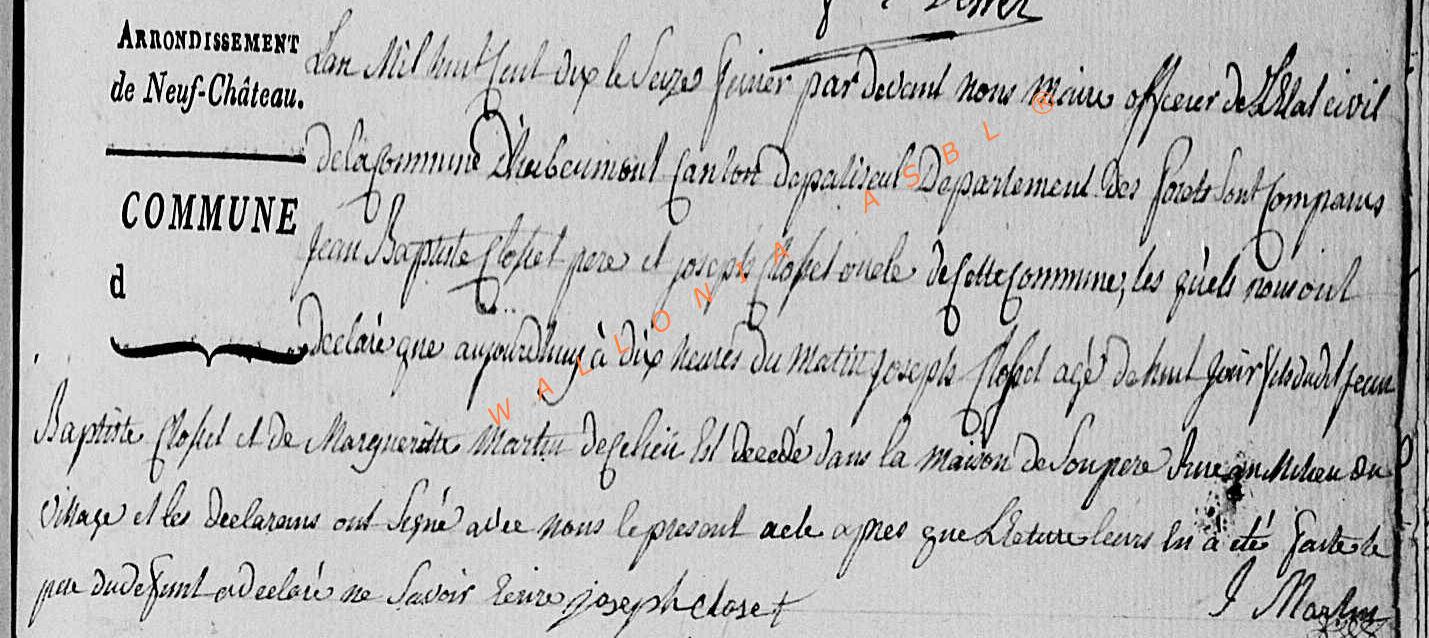 ARRONDISSEMENT
de Neuf-Château.
COMMUNE
d
L'an Mil huit Cent dix le Seize fevrier par devant nous Maire officier de L'Etat civil
de la Commune D'herbeumont Canton de paliseul Departement Des forets Sont Comparus
Jean Baptiste Closset pere et joseph Closset oncle de Cette Commune, les quels nous ont
declaré que aujourdhuy à dix heures du Matin joseph Closset agé de huit jour fils dudit jean
Baptiste Closset et de Margueritte Martin de Ce lieu Est decedé dans la maison de Son pere Rue au Milieu du
village et les declarans ont Signé avec nous le present acte apres que Lecture leurs en à eté faite le
pere du defunt a declaré ne Savoir Ecrire joseph closet
J Martin
WALLONIA ASBL ®